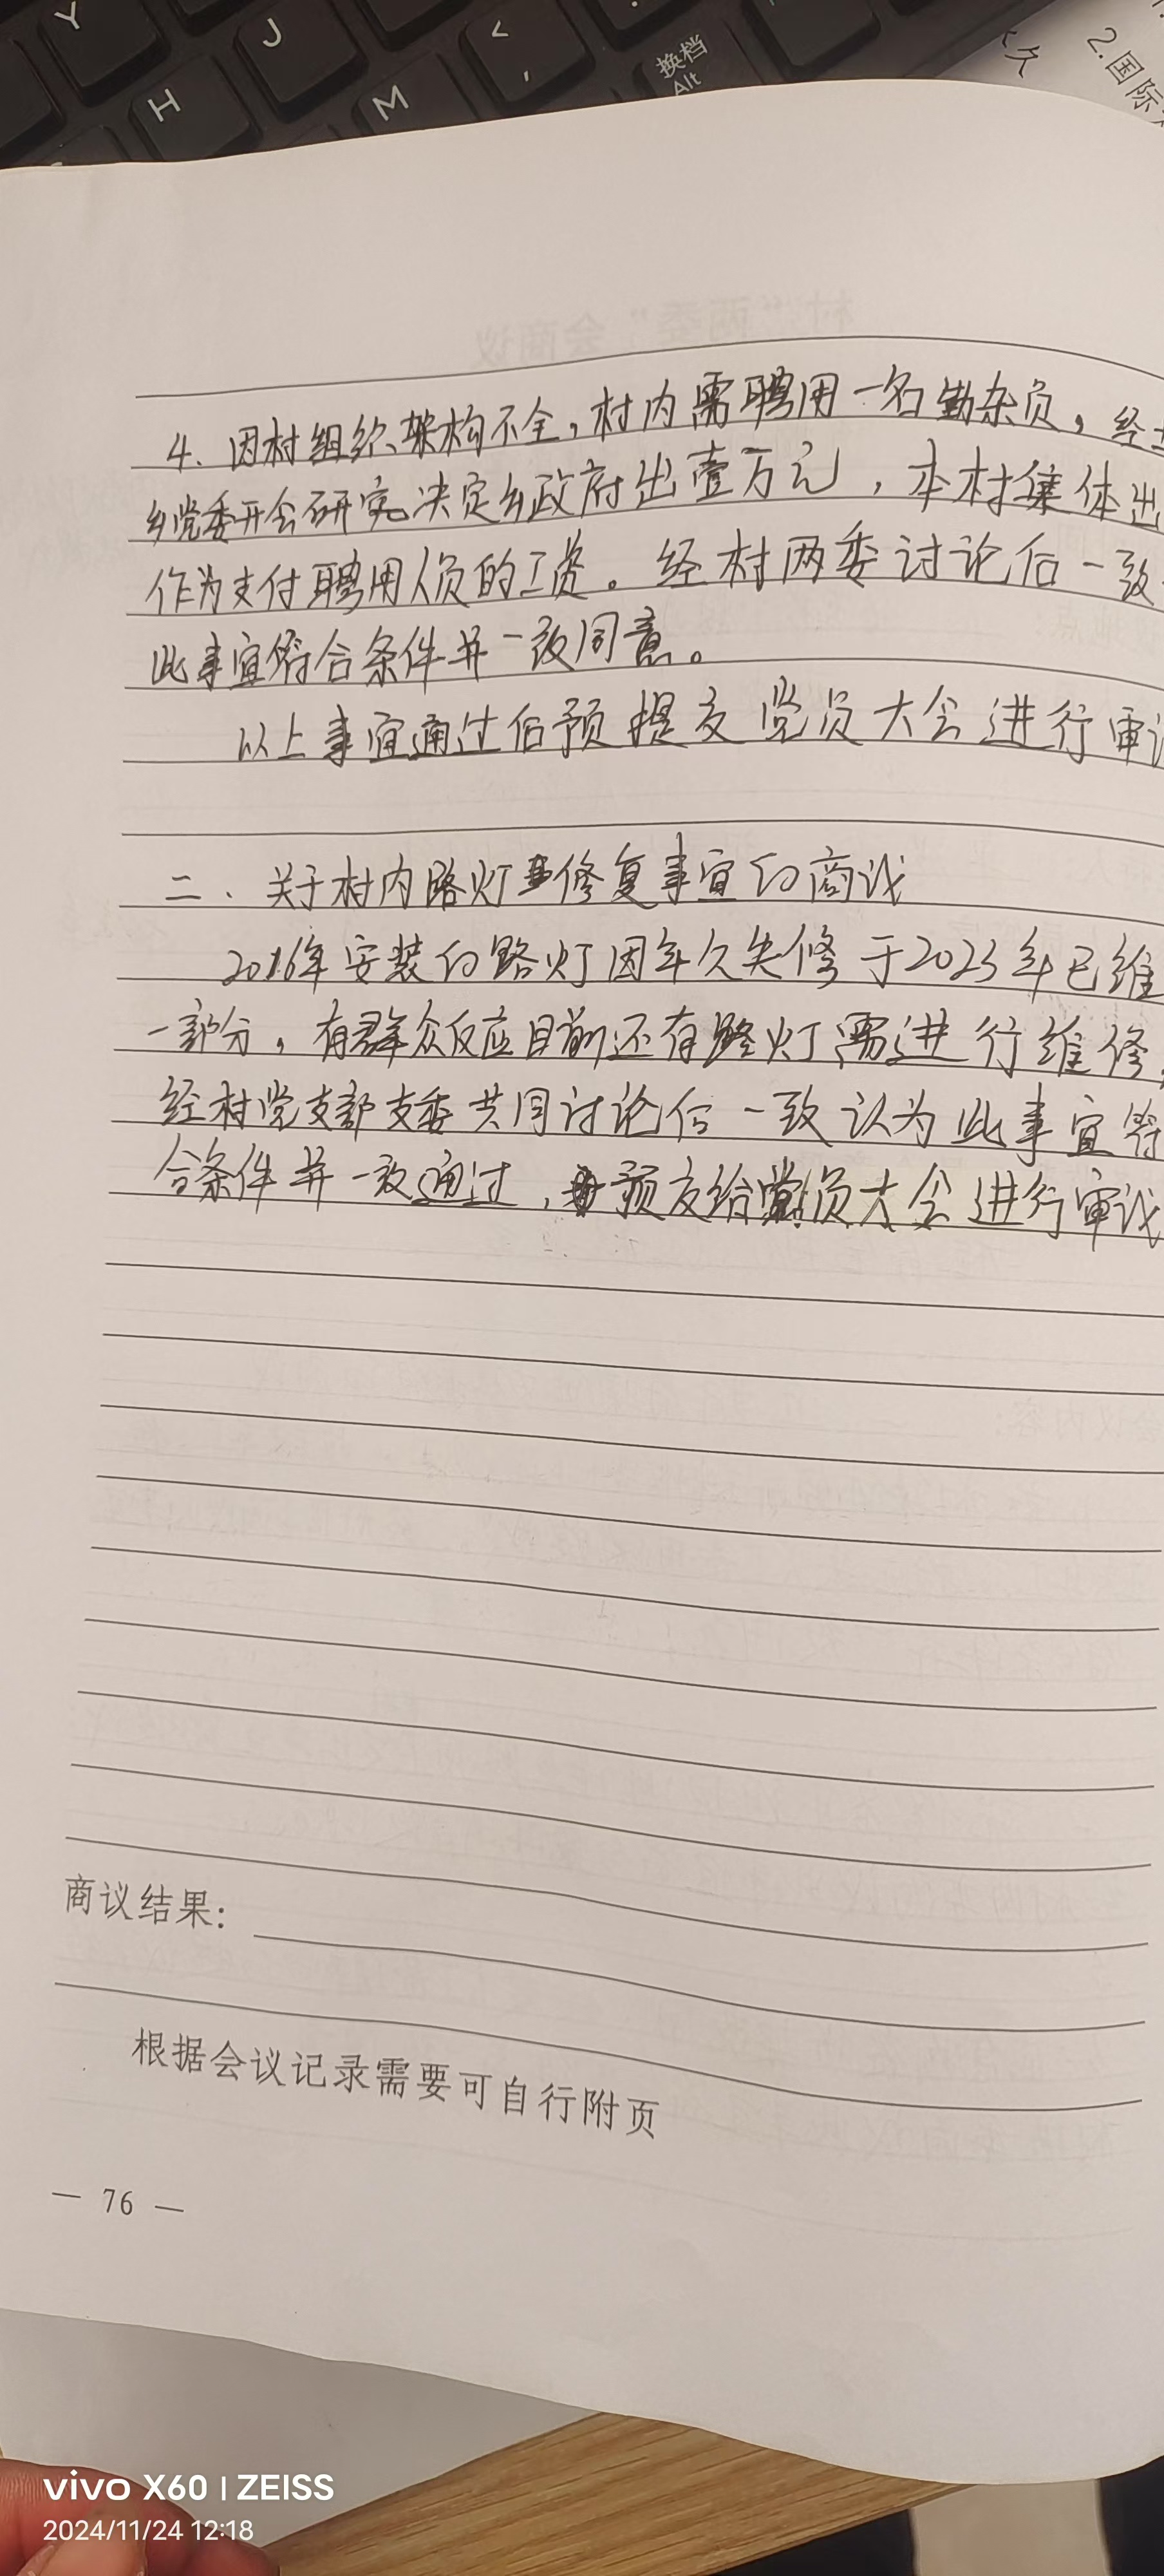 Y
J
<
,
换档
Alt
H
M
久
2.国际
村“两委”会商议
4.因村组织架构不全,村内需聘用一名勤杂员,经
乡党委开会研究决定乡政府出壹万元,本村集体出
作为支付聘用人员的工资。经村两委讨论后一致
此事宜符合条件并一致同意。
以上事宜通过后预提交党员大会进行审议
二.关于村内路灯修复事宜的商议
2016年安装的路灯因年久失修于2023年已维
一部分,有群众反应目前还有路灯需进行维修,
经村党支部支委共同讨论后一致认为此事宜符
合条件并一致通过,预交给党员大会进行审议
会议内容:
商议结果:
根据会议记录需要可自行附页
— 76 —
vivo X60 | ZEISS
2024/11/24 12:18